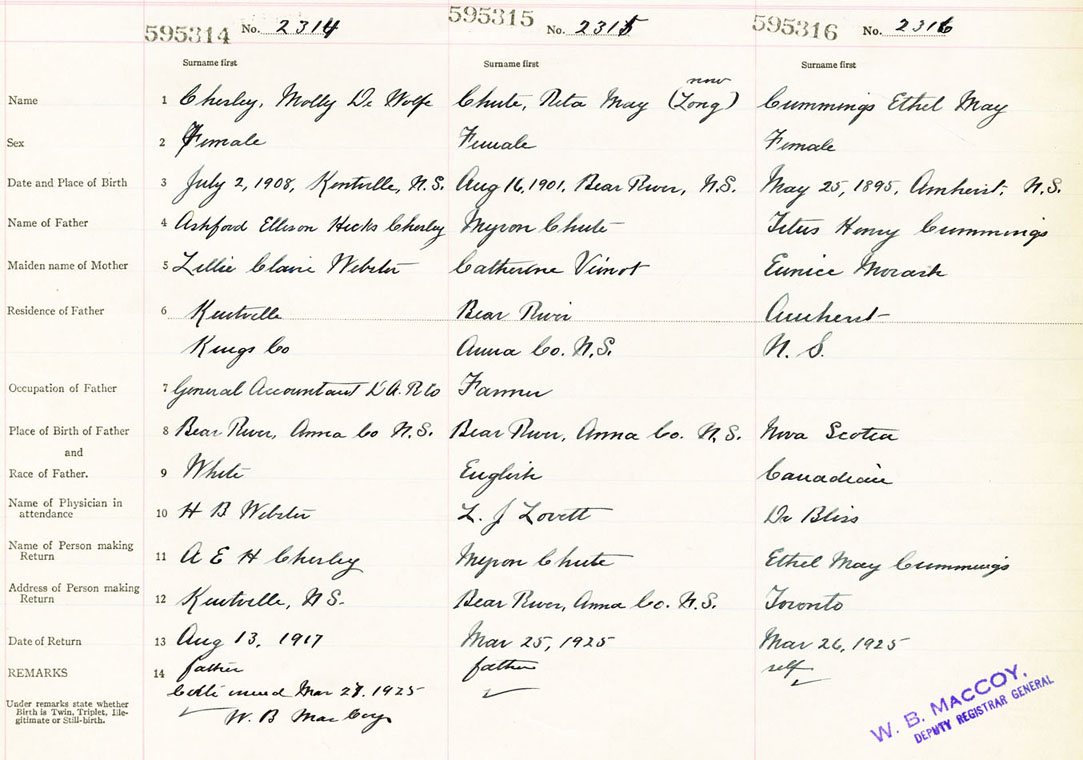 595314 No. 2314 595315 No. 2315 595316 No. 2316
Surname first Surname first Surname first
now
Name 1 Chesley, Molly De Wolfe Chute, Rita May (Long) Cummings Ethel May
Sex 2 Female Female Female
Date and Place of Birth 3 July 2, 1908, Kentville, N.S. Aug 16, 1901, Bear River, N.S. May 25, 1895, Amherst, N.S.
Name of Father 4 Ashford Ellison Hicks Chesley Myron Chute Titus Henry Cummings
Maiden name of Mother 5 Lillie Claire Webster Catherine Eunice
Residence of Father 6 Kentville Bear River Amherst
Kings Co Anna Co. N.S. N. S.
Occupation of Father 7 General Accountant D.A.R Co Farmer
Place of Birth of Father 8 Bear River, Anna Co N.S. Bear River, Anna Co. N.S. Nova Scotia
and
Race of Father. 9 White English Canadian
Name of Physician in
attendance 10 H B Webster L. J Lovett Dr Bliss
Name of Person making
Return 11 A E H Chesley Myron Chute Ethel May Cummings
Address of Person making
Return 12 Kentville, N S. Bear River, Anna Co. N.S. Toronto
Date of Return 13 Aug 13, 1917 Mar 25, 1925 Mar 26, 1925
REMARKS 14 father father self
Mar 27, 1925
Under remarks state whether
Birth is Twin, Triplet, Ille-
gitimate or Still-birth.
W. B MacCoy
W. B. MACCOY,
DEPUTY REGISTRAR GENERAL